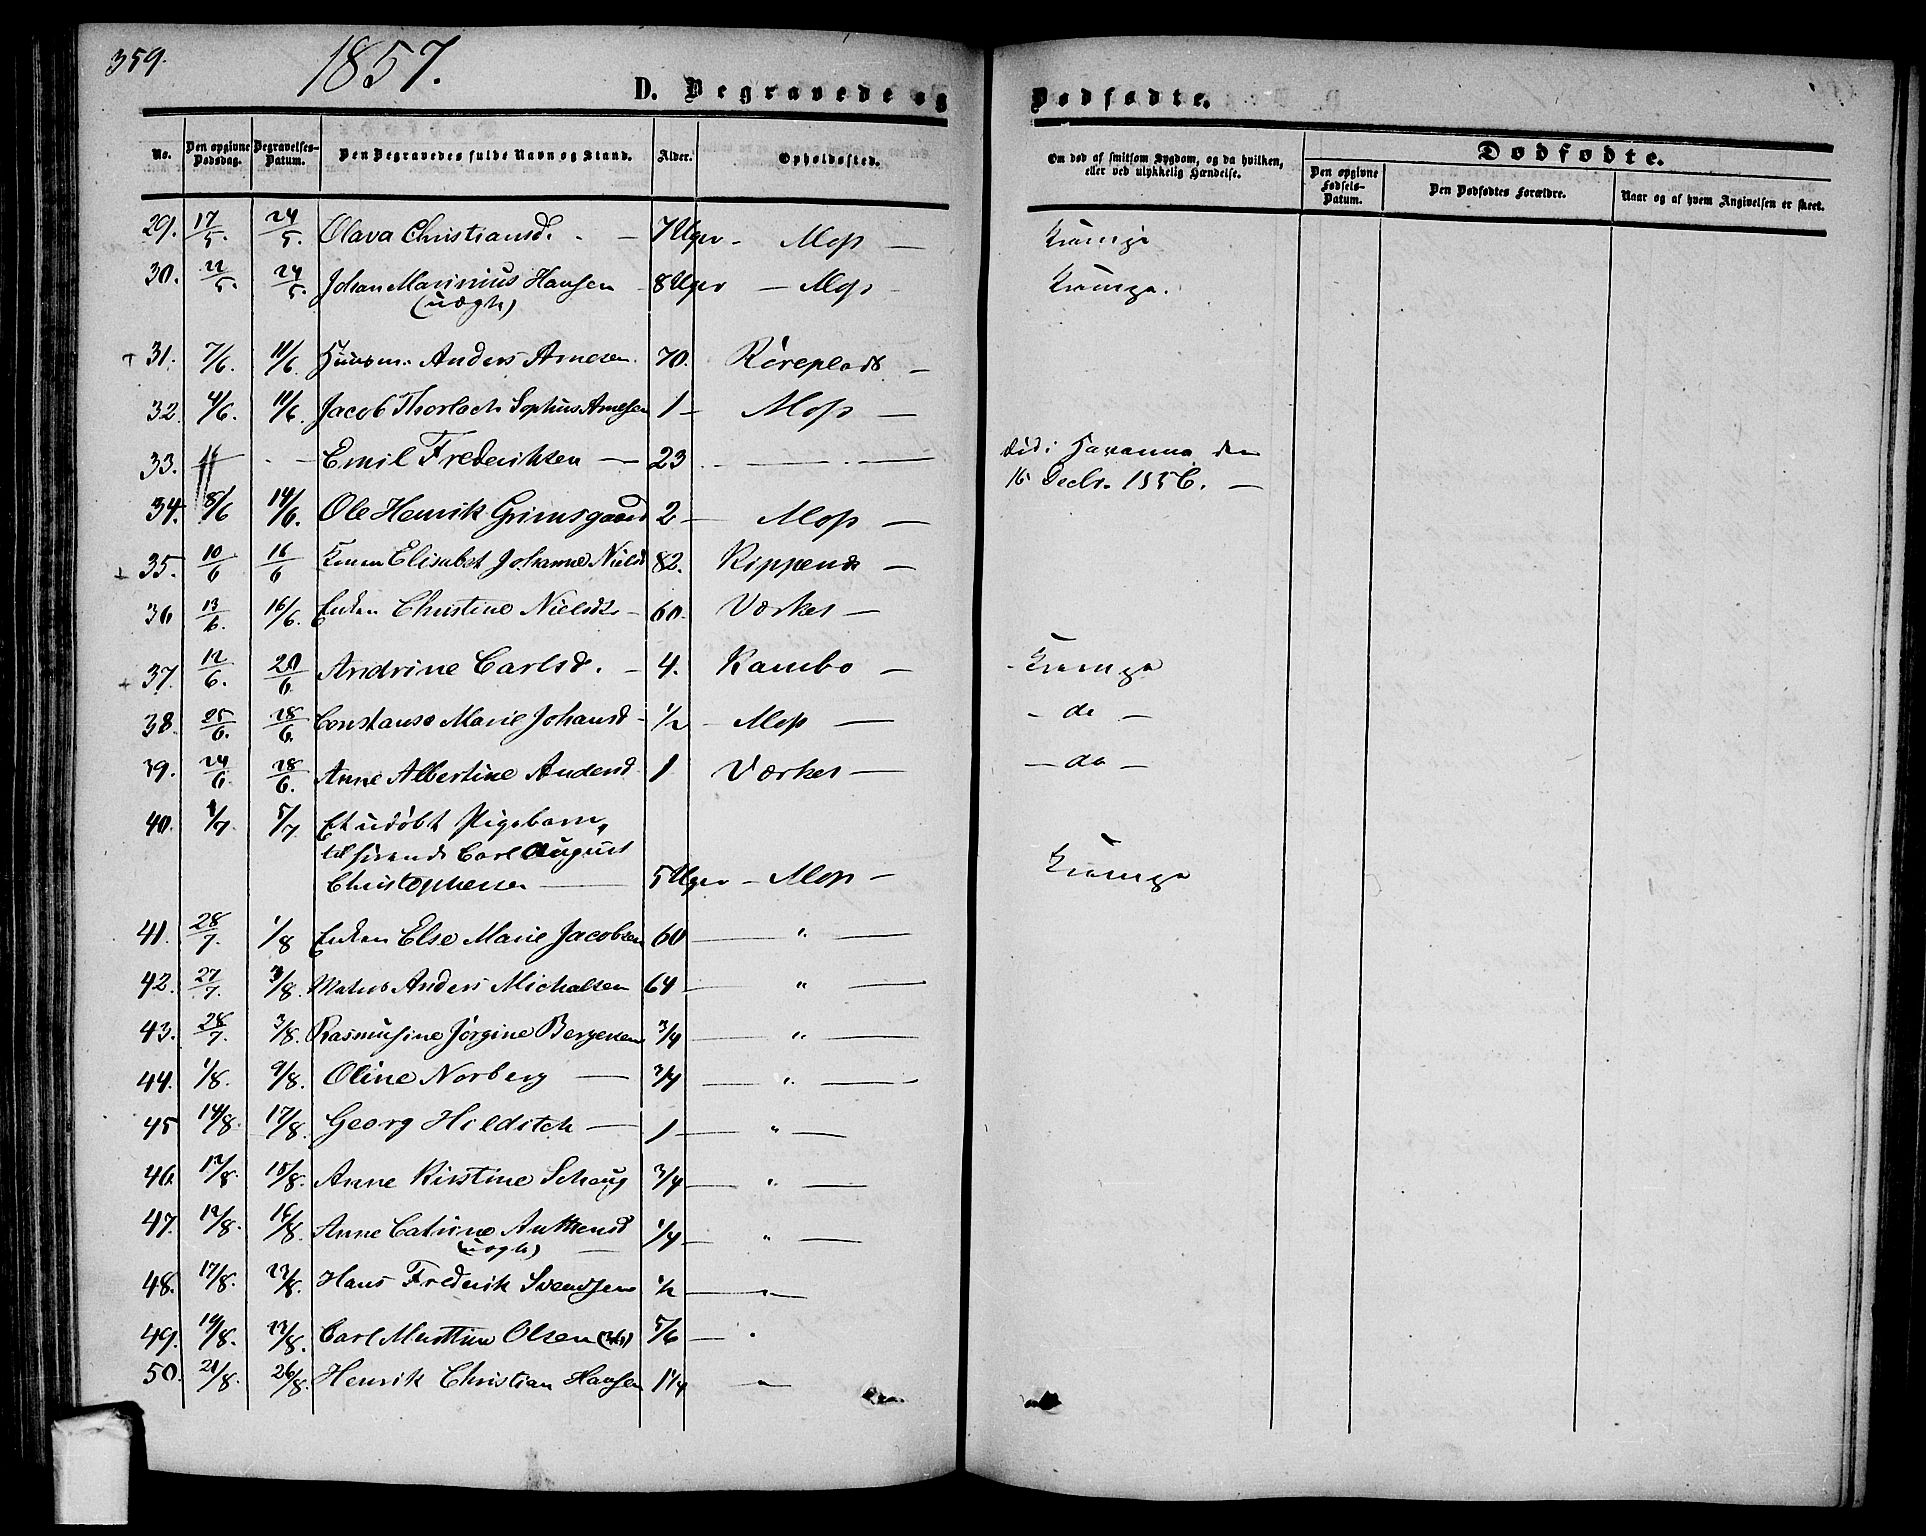 359.
1857.
D. Begravede og
Dødfødte.
No.
Den opgivne Dødsdag.
Begravelses-Datum.
Den Begravedes fulde Navn og Stand.
Alder.
Opholdssted.
Om død af smitsom Sygdom, og da hvilken,
eller ved ulykkelig Hændelse.
Dødfødte.
Den opgivne Fødsels-Datum.
Den Dødfødtes Forældre.
Naar og af hvem Angivelsen er skeet.
29. 17/5. 24/5. Olava Christiansd. - 7 Uger - Moss - Krampe
30. 22/5. 24/5. Johan Marinius Hansen 8 Uger - Moss - Krampe.
(uægte)
31. 7/6. 11/6. Huusm. Anders Arnesen. 70.
32. 4/6. 11/6. Jacob Thorlach Sophus Arnesen 1 - Moss -
33. " - - Emil Frederiksen - 23 - død i Havanna den
16 Decbr. 1856. -
34. 8/6 14/6. Ole Henrik Grimsgaard 2 - Moss -
35. 10/6 16/6 Konen Elisabet Johanne Nielsd 82.
36 13/6. 16/6. Enken Christine Nielsdtr - 60. Værket -
37. 12/6. 20/6 Andrine Carlsd. - 4. Kambo - - Krampe
38. 25/6. 28/6. Constanse Marie Johansd - 1/2 - Moss - - do -
39. 24/6 28/6. Anne Albertine Andersd 1 Værket - - do -
40. 1/7. 5/7. Et udøbt Pigebarn,
Carl August
Christophersen - 5 Uger - Moss - Krampe
41. 28/7. 1/8 Enken Else Marie Jacobsen 60 - " -
42. 27/7. 3/8. Matros Anders Michalsen 64 - " -
43. 28/7. 3/8. Rasmusine Jørgine Bergersen 3/4 - " -
44. 1/8. 9/8. Oline Norberg - 3/4 - " -
45 14/8. 17/8. Georg Hilditch - 1 - " -
46. 12/8. 15/8. Anne Kirstine Schaug 3/4 - " -
47. 12/8. 16/8. Anne Catrine Anthensd 1/4 - " -
(uægte) -
48. 17/8. 23/8. Hans Frederik Svendsen 1/2 - " -
49. 19/8. 23/8. Carl Martin Olsen 5/6 - "
50. 21/8. 26/8. Henrik Christian Hansen 1 1/4 "